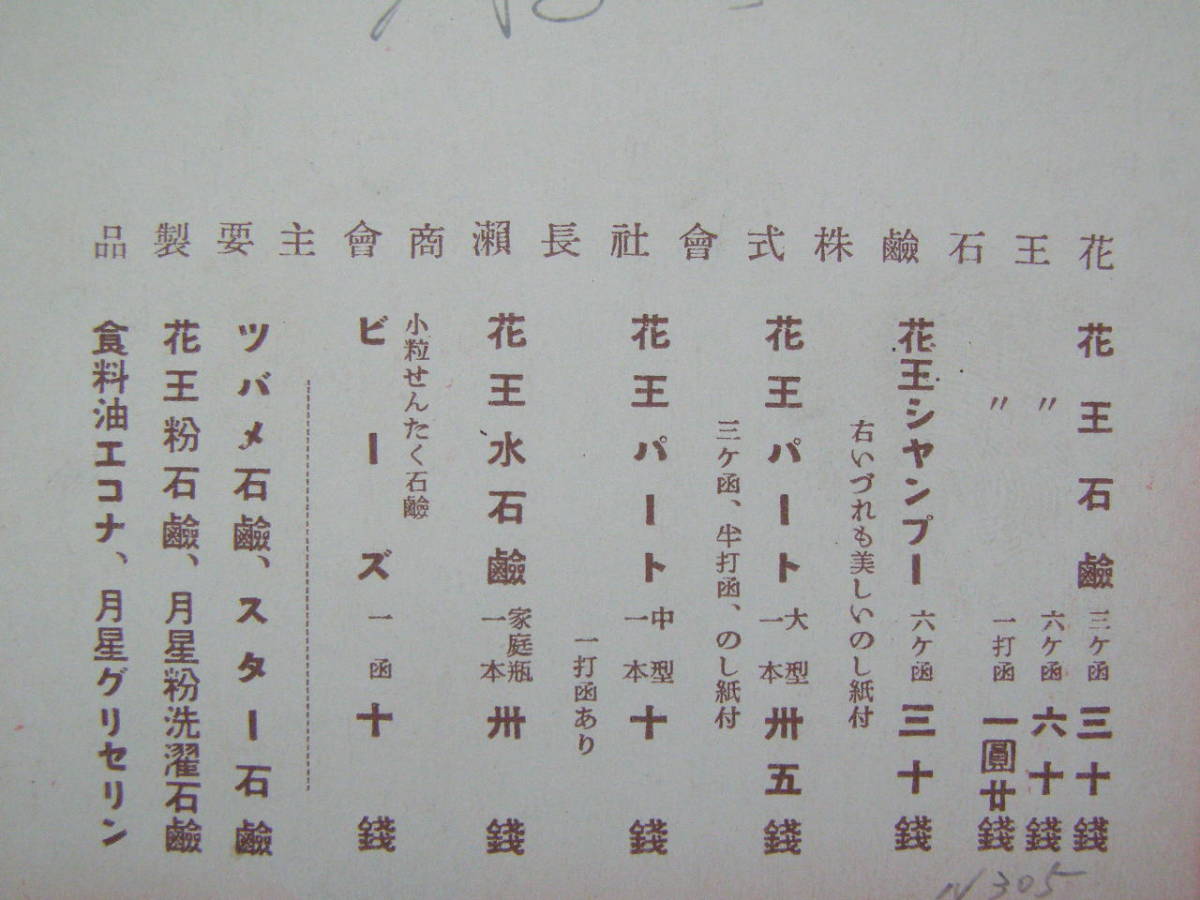 花王石鹼株式會社長瀨商會主要製品
花王石鹼 三ケ函 三十錢
〃 六ケ函 六十錢
〃 一打函 一圓廿錢
花王シヤンプー 六ケ函 三十錢
右いづれも美しいのし紙付
花王パート 大型一本 卅五錢
三ケ函、半打函、のし紙付
花王パート 中型一本 十錢
一打函あり
花王水石鹼 家庭瓶一本 卅錢
小粒せんたく石鹼
ビーズ 一函 十錢
ツバメ石鹼、スター石鹼
花王粉石鹼、月星粉洗濯石鹼
食料油エコナ、月星グリセリン
N305